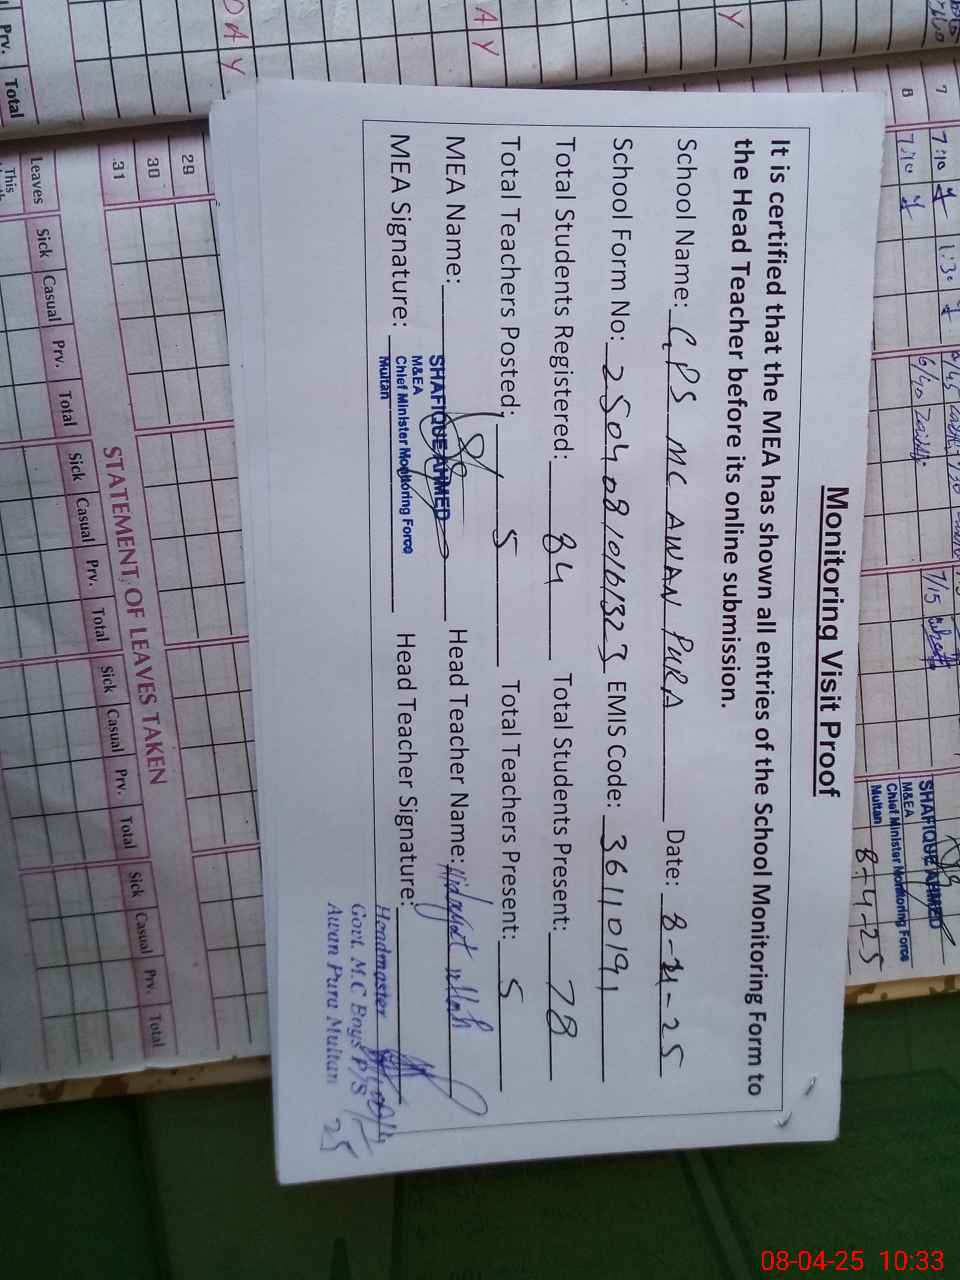 Monitoring Visit Proof
It is certified that the MEA has shown all entries of the School Monitoring Form to
the Head Teacher before its online submission.
School Name: GPS MC AWAN PURA Date: 8-4-25
School Form No: 2504081016323 EMIS Code: 36110191
Total Students Registered: 84 Total Students Present: 78
Total Teachers Posted: 5 Total Teachers Present: 5
MEA Name: SHAFIQUE AHMED Head Teacher Name: Hidayat ullah
M&EA
Chief Minister Monitoring Force
Multan
MEA Signature: Head Teacher Signature:
Headmaster
Govt. M.C Boys P/S
Awan Pura Multan
25
SHAFIQUE AHMED
M&EA
Chief Minister Monitoring Force
Multan
8-4-25
7 7:10 1:30
8 7:10
6/40
7/5
DAY
AY
Y
Prv. Total
29
30
31
STATEMENT OF LEAVES TAKEN
Leaves Sick Casual Prv. Total Sick Casual Prv. Total Sick Casual Prv. Total Sick Casual Prv. Total
This
08-04-25 10:33